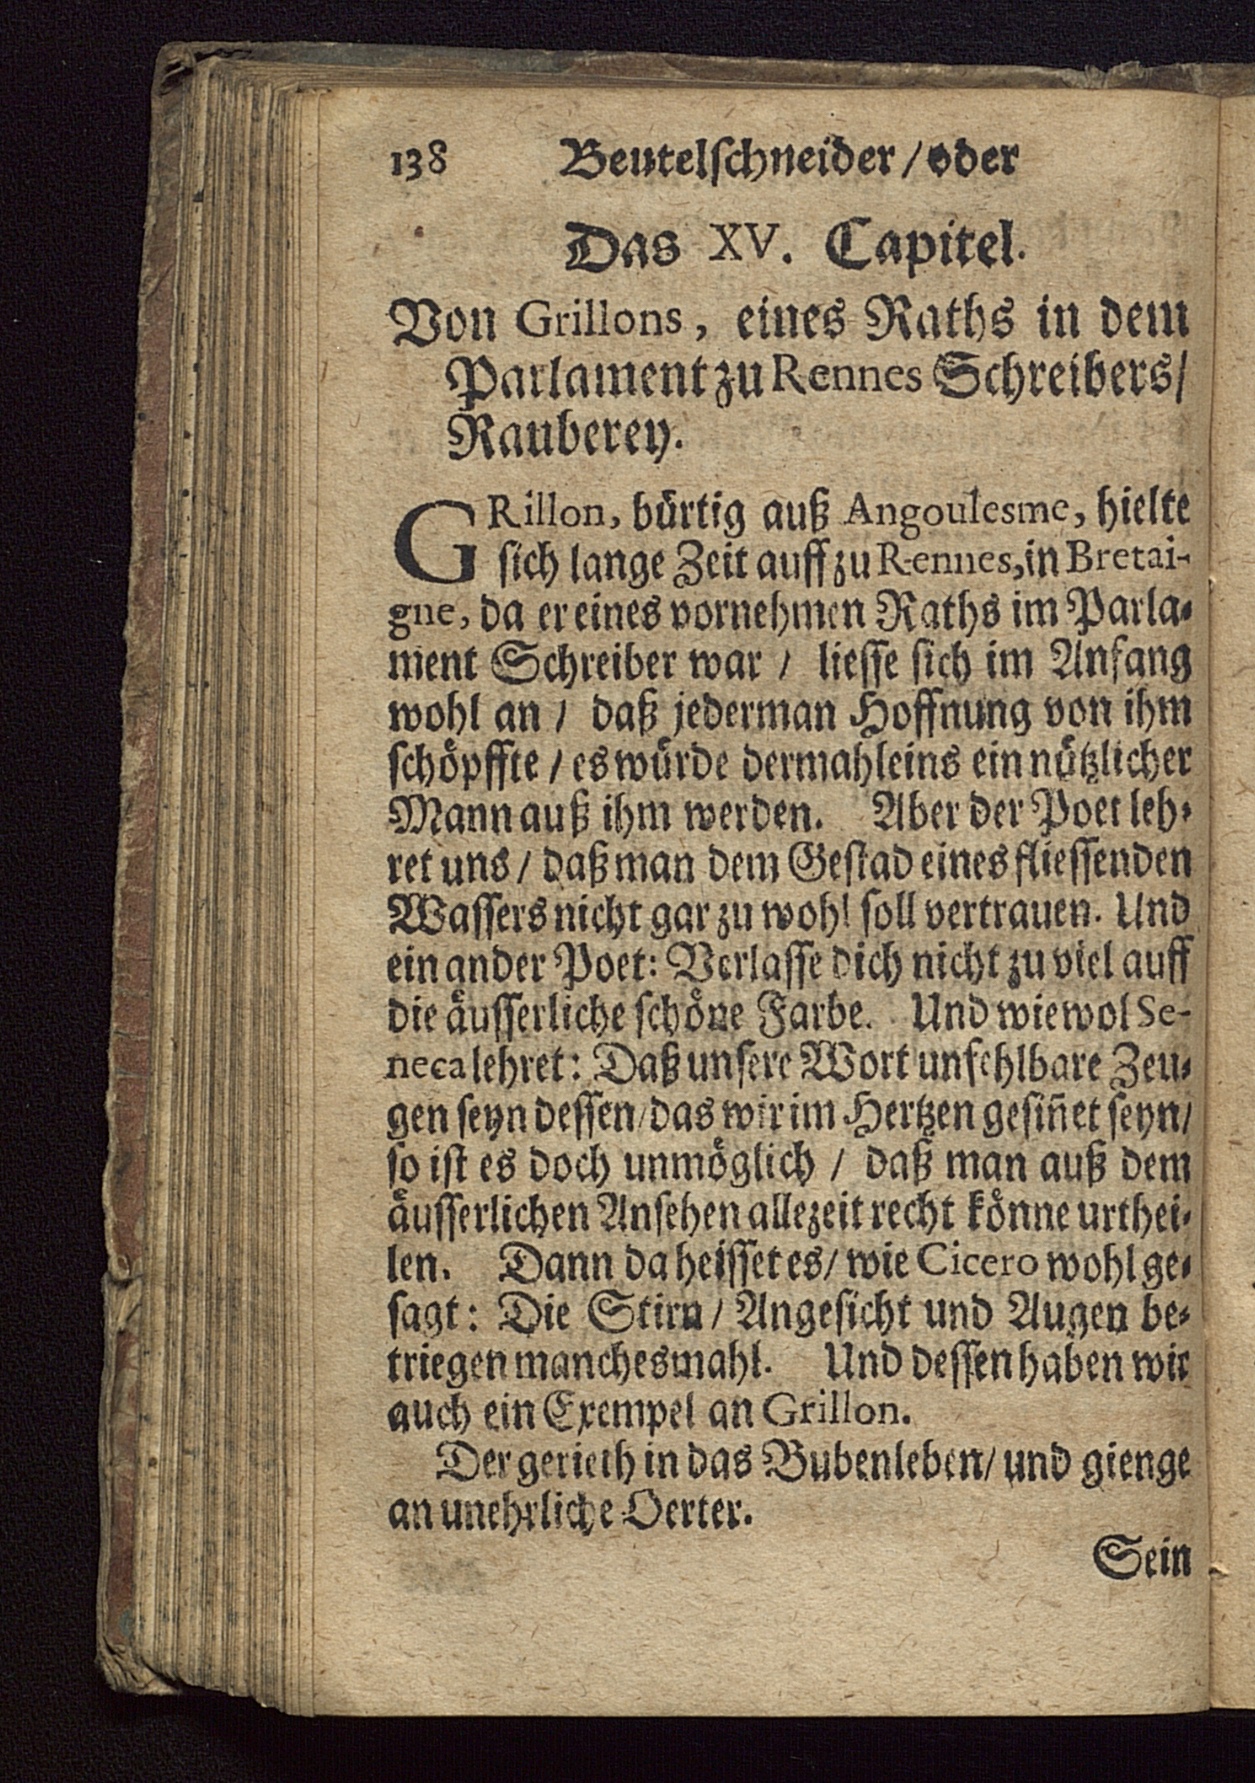 138 Beutelschneider / oder
Das XV. Capitel.
Von Grillons, eines Raths in dem
Parlament zu Rennes Schreibers /
Rauberey.
GRillon, bürtig auß Angoulesme, hielte
sich lange Zeit auff zu Rennes, in Bretai-
gne, da er eines vornehmen Raths im Parla-
ment Schreiber war / liesse sich im Anfang
wohl an / daß jederman Hoffnung von ihm
schöpffte / es würde dermahleins ein nützlicher
Mann auß ihm werden. Aber der Poet leh-
ret uns / daß man dem Gestad eines fliessenden
Wassers nicht gar zu wohl soll vertrauen. Und
ein ander Poet: Verlasse dich nicht zu viel auff
die äusserliche schöne Farbe. Und wiewol Se-
neca lehret: Daß unsere Wort unfehlbare Zeu-
gen seyn dessen / das wir im Hertzen gesiñet seyn /
so ist es doch unmöglich / daß man auß dem
äusserlichen Ansehen allezeit recht könne urthei-
len. Dann da heisset es / wie Cicero wohl ge-
sagt: Die Stirn / Angesicht und Augen be-
triegen manchesmahl. Und dessen haben wir
auch ein Exempel an Grillon.
Der gerieth in das Bubenleben / und gienge
an unehrliche Oerter.
Sein